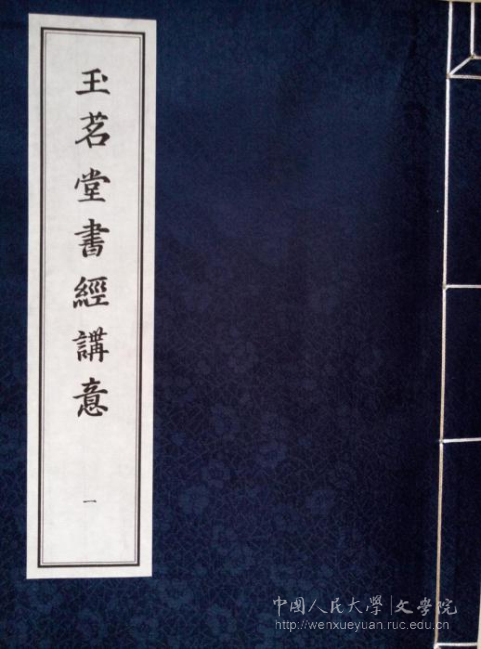 玉茗堂書經講意
一
中国人民大學|文學院
http://wenxueyuan.ruc.edu.cn